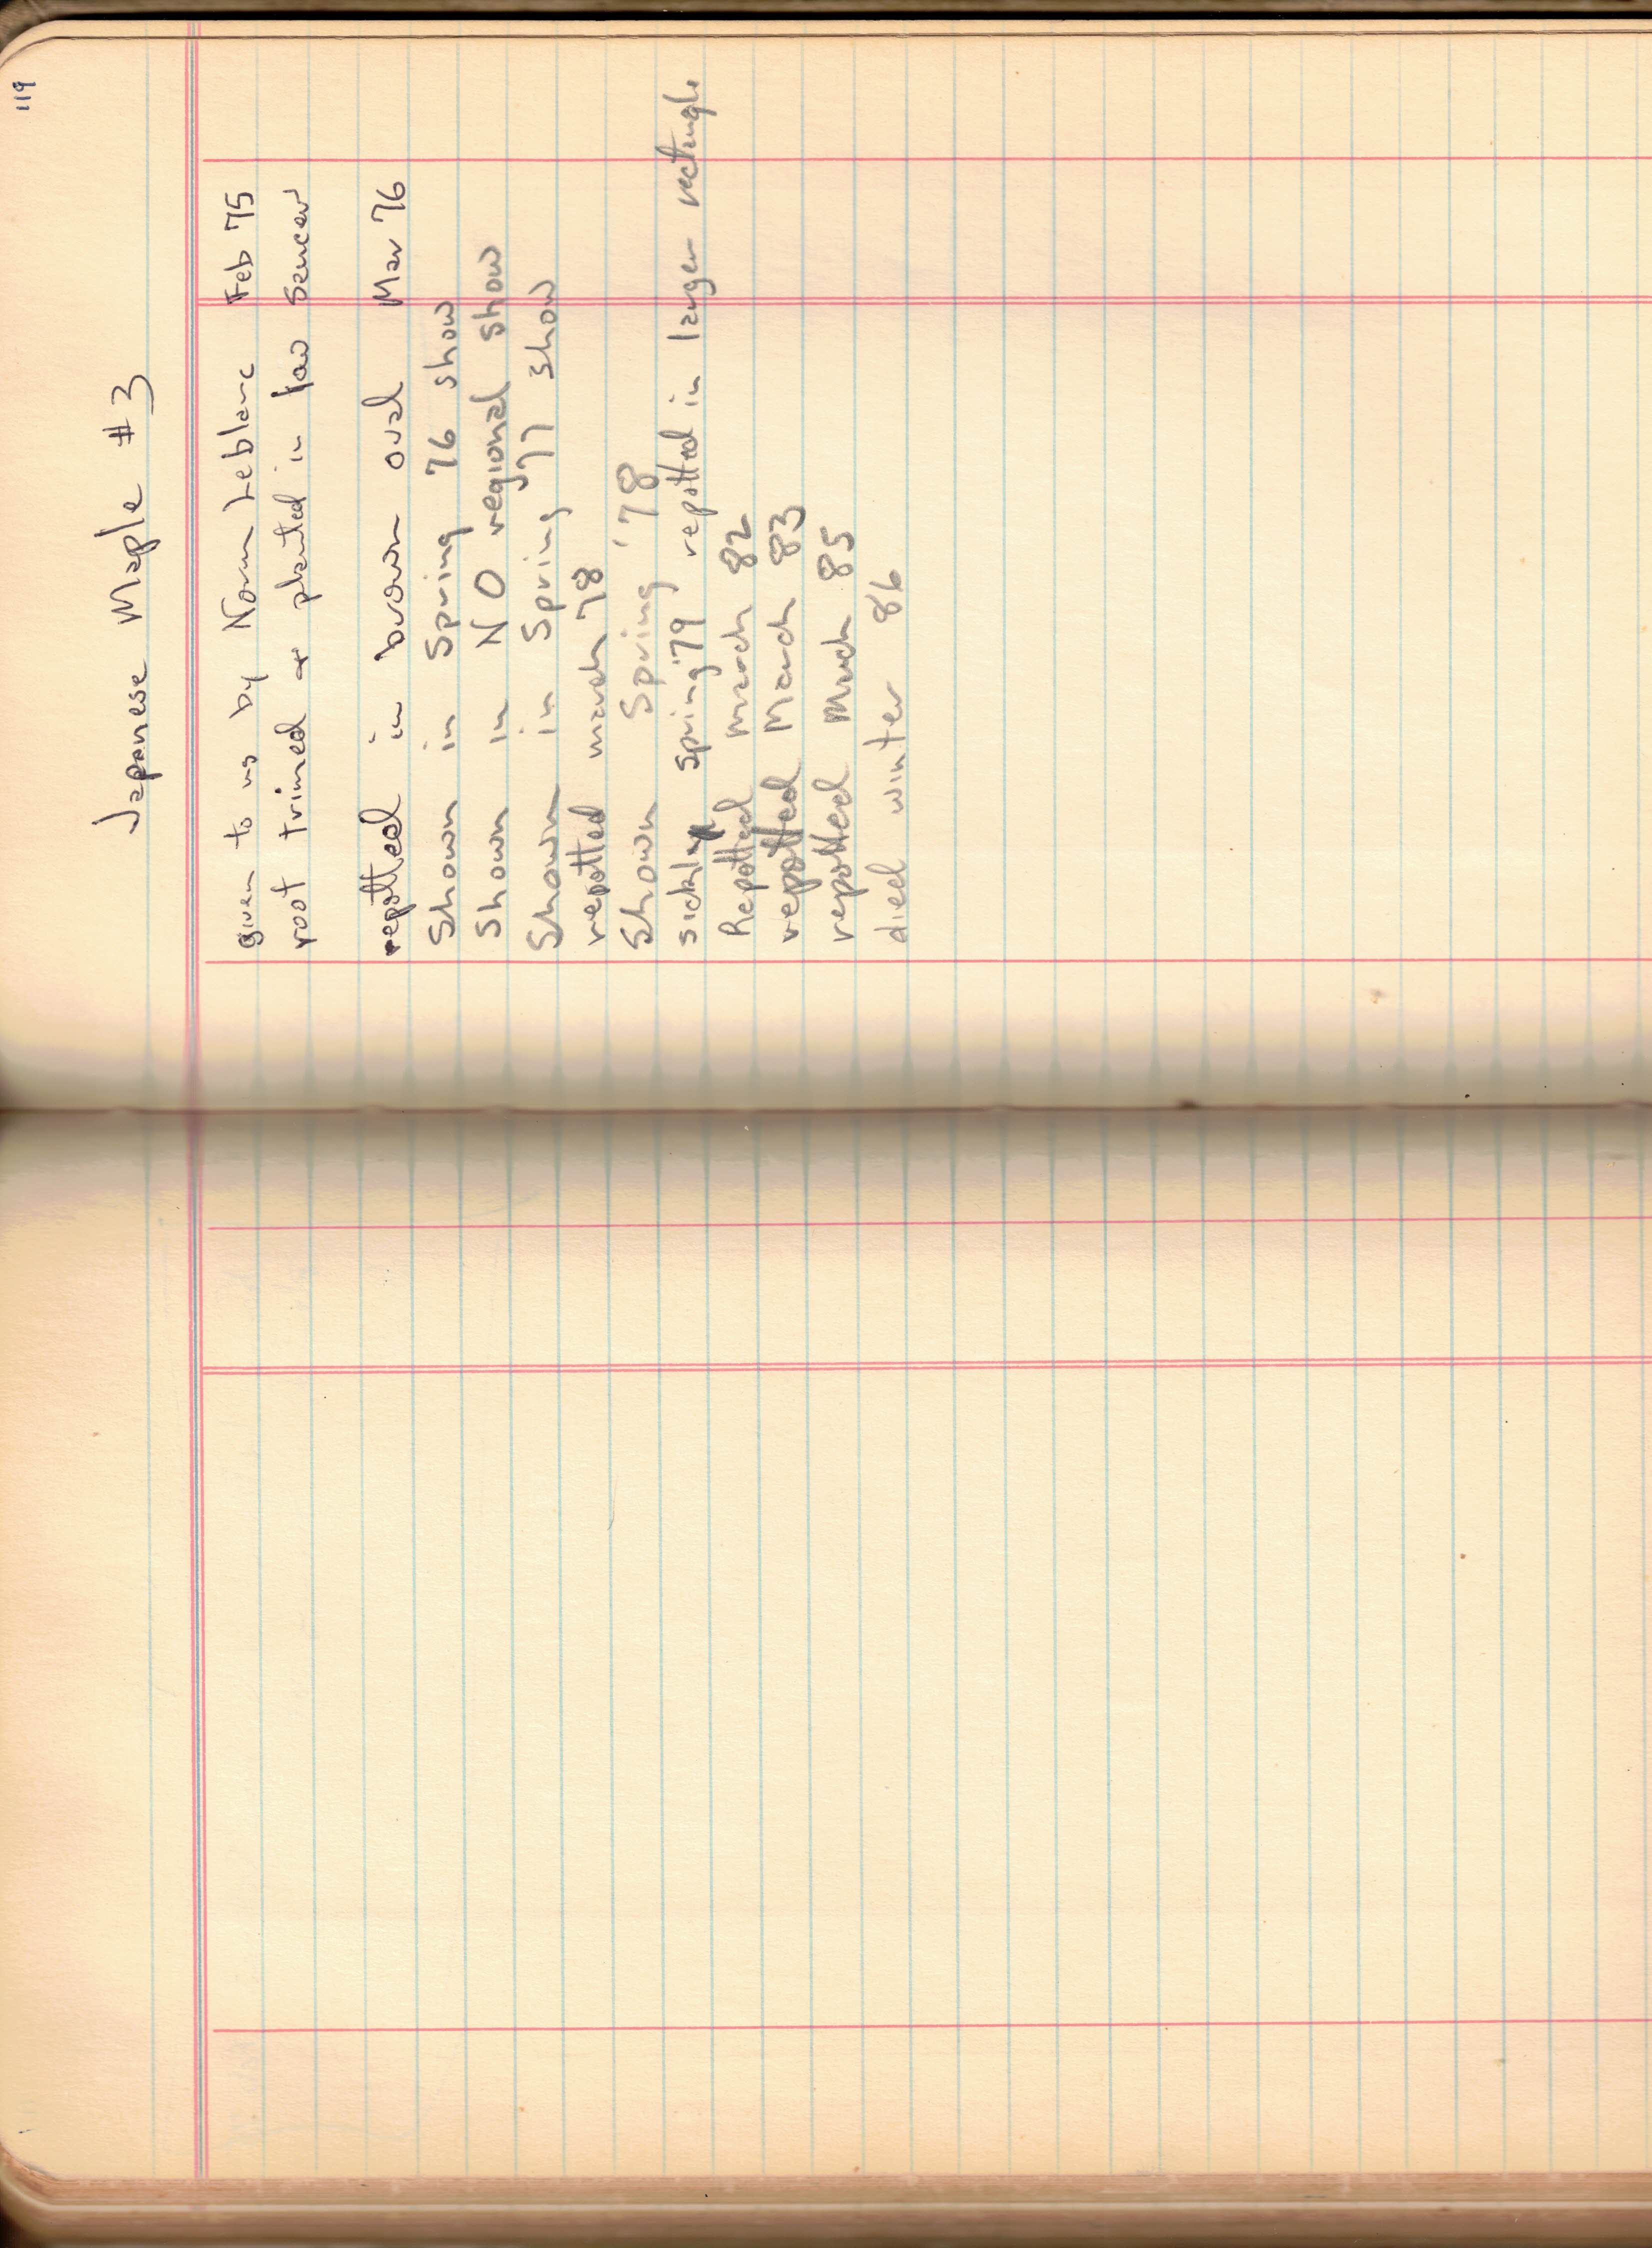 119
Japanese Maple #3
given to us by Norm Leblanc Feb 75
root trimed & planted in low saucer
repotted in brown oval Mar 76
Shown in Spring 76 show
Shown in NO regional show
Shown in Spring '77 show
repotted march 78
Shown Spring '78
sickly spring '79 repotted in larger rectangle
Repotted March 82
repotted March 83
repotted March 85
died winter 86